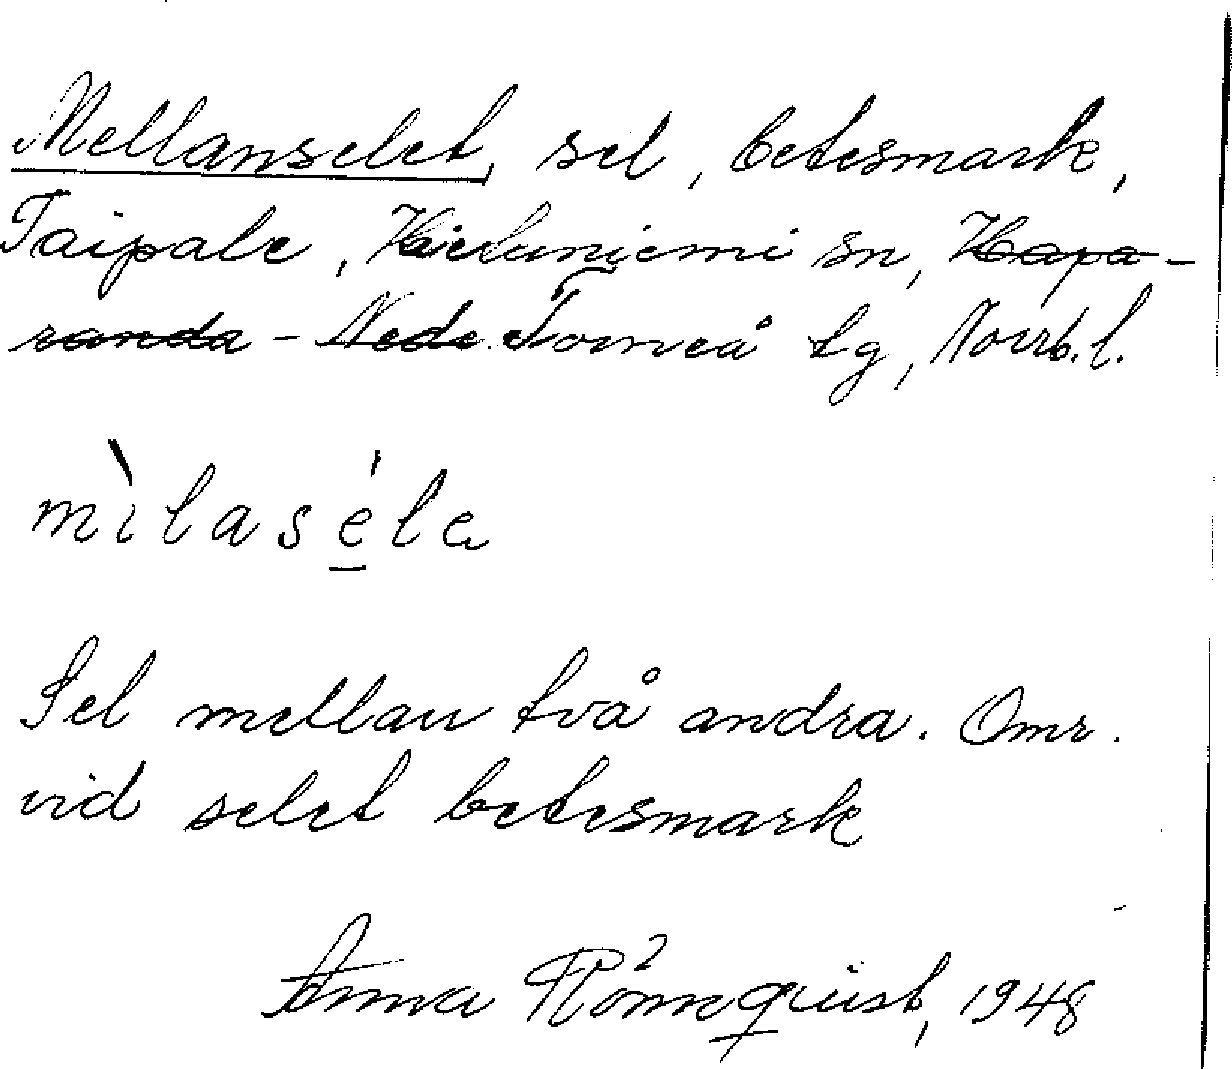 Mellanselet, sel, betesmark,
Taipale, Hietaniemi sn, Hapa-
randa - Nede. Torneå tg, Norrb. l.
mìlasélɐ
Sel mellan två andra. Omr.
vid selet betesmark
Anna Rönnqvist, 1948